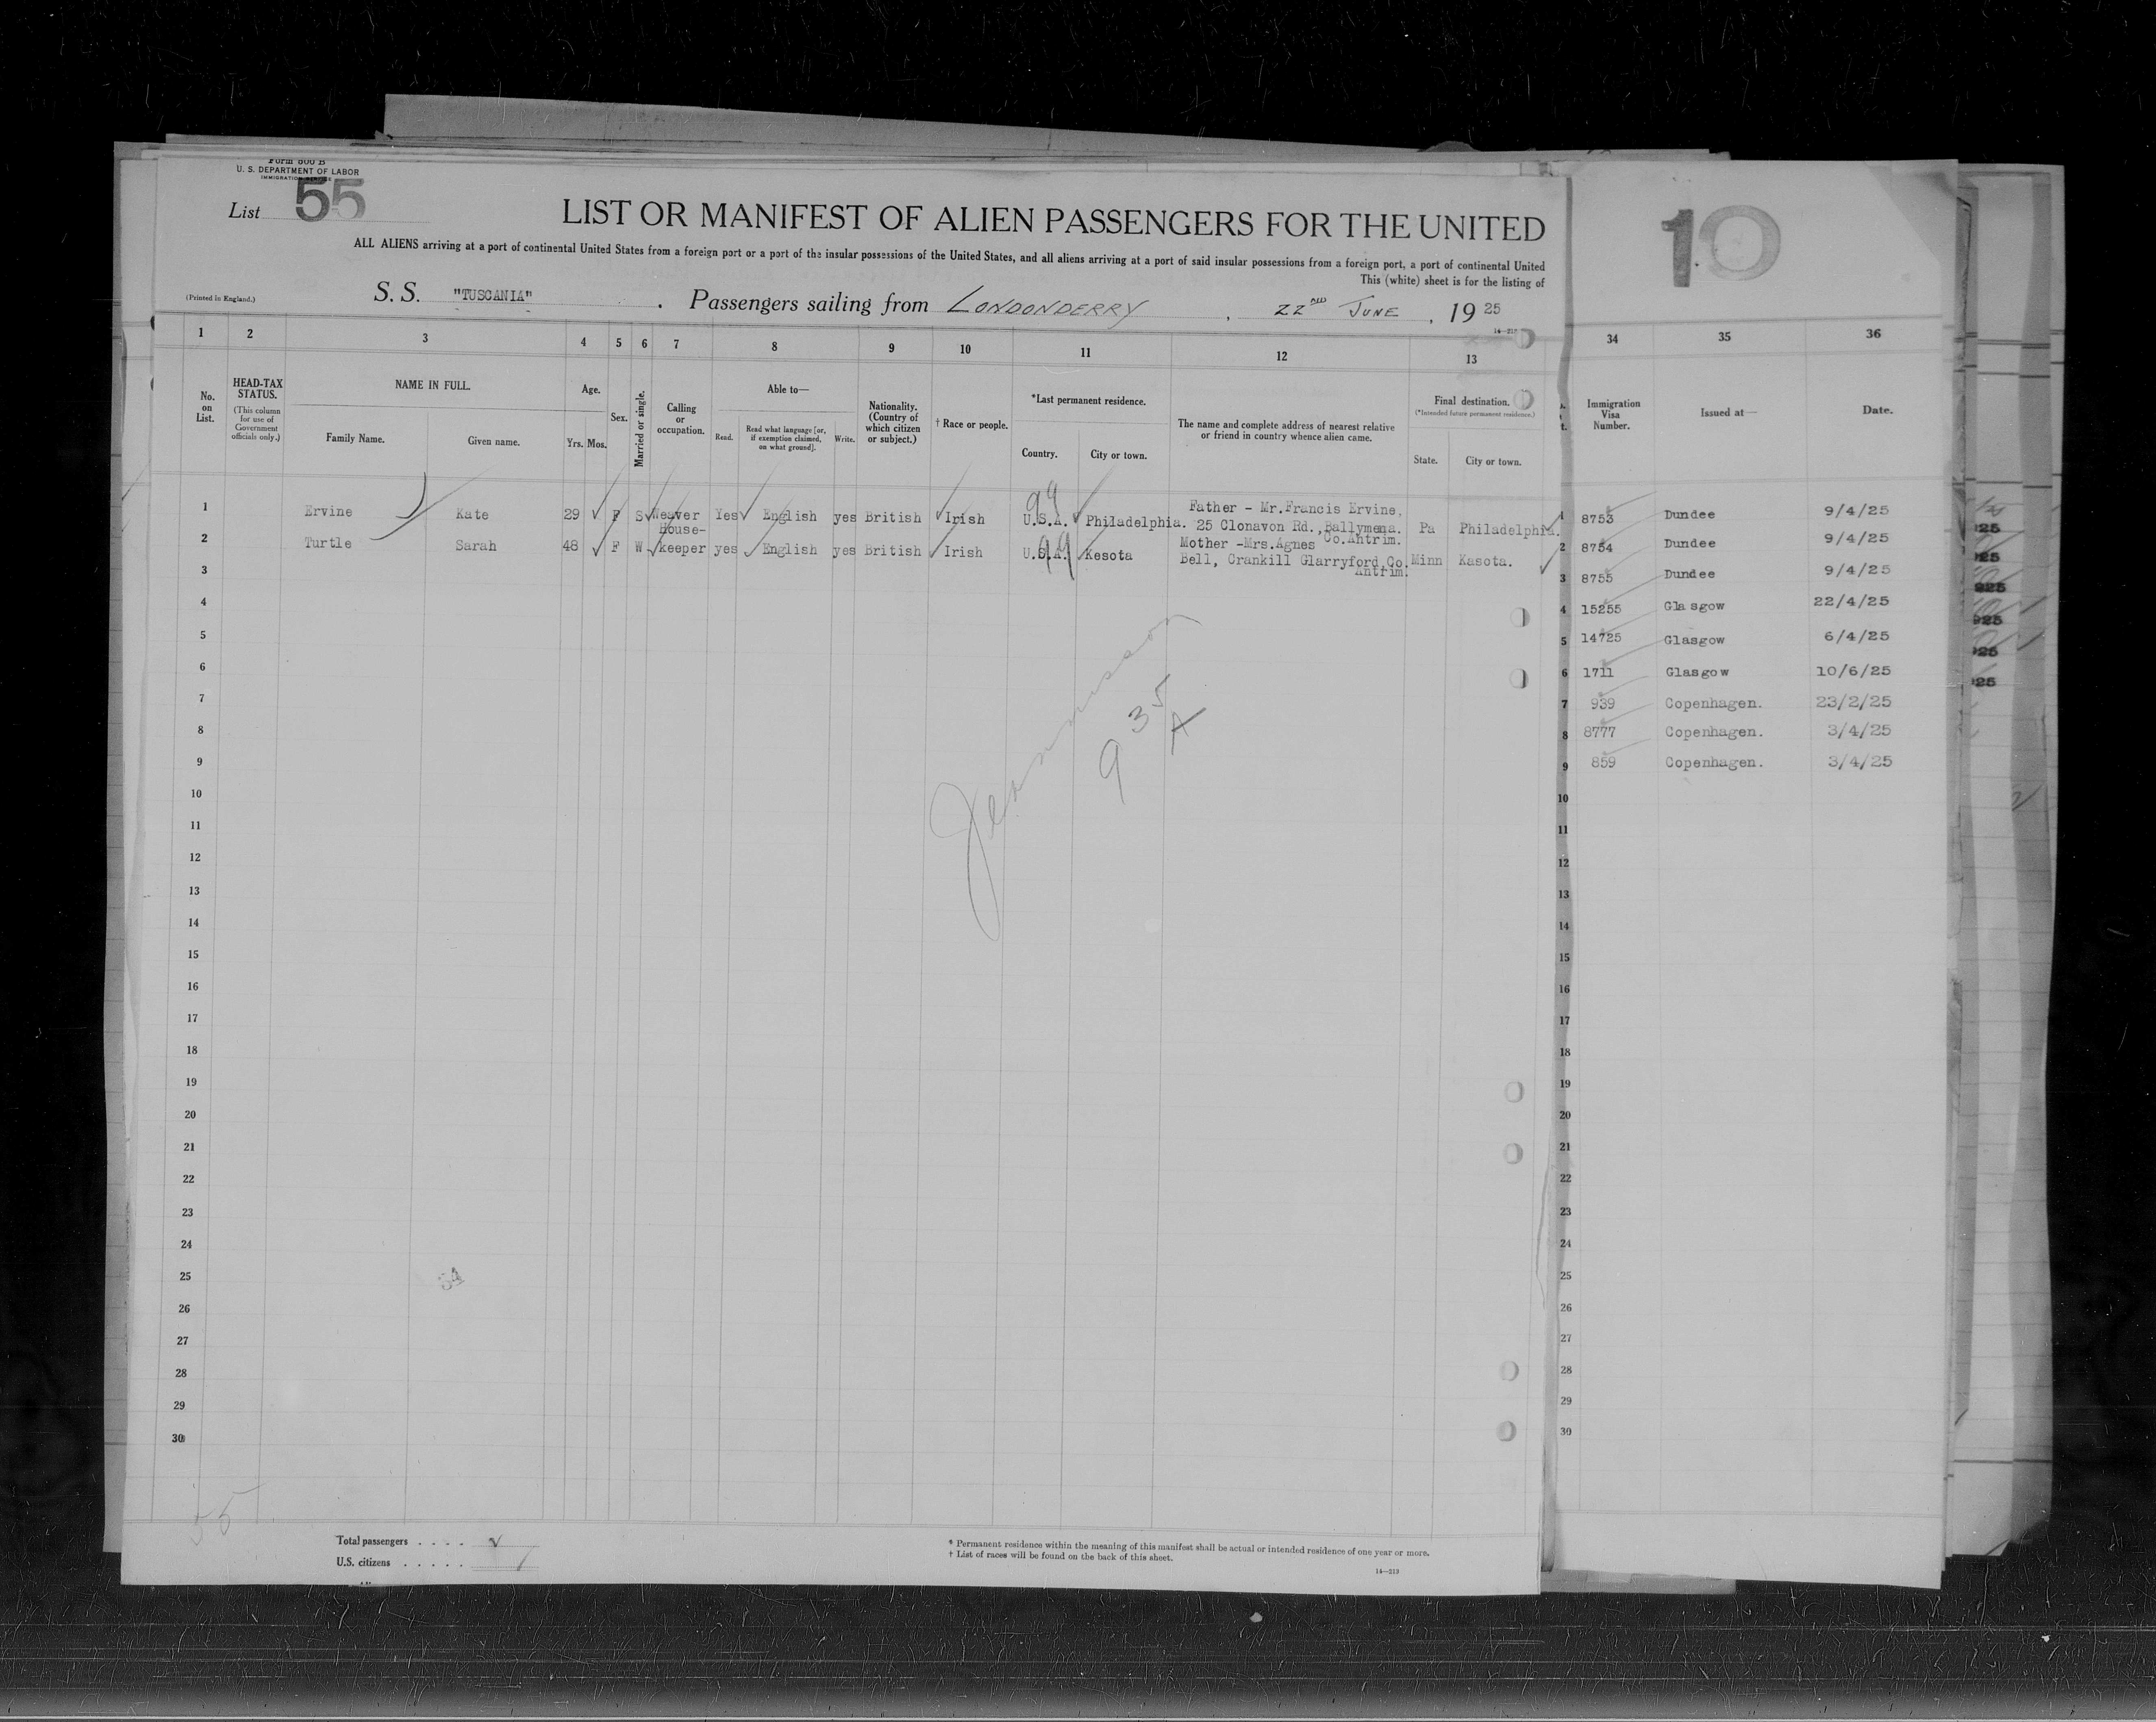 Form 500 B
U. S. DEPARTMENT OF LABOR
IMMIGRATION SERVICE
List 55
LIST OR MANIFEST OF ALIEN PASSENGERS FOR THE UNITED
ALL ALIENS arriving at a port of continental United States from a foreign port or a port of the insular possessions of the United States, and all aliens arriving at a port of said insular possessions from a foreign port, a port of continental United
This (white) sheet is for the listing of
(Printed in England.)
S. S. "TUSCANIA" . Passengers sailing from LONDONDERRY , 22ND JUNE , 19 25
1 2 3 4 5 6 7 8 9 10 11 12 13
No. on List.
HEAD-TAX STATUS.
(This column for use of Government officials only.)
NAME IN FULL.
Family Name. Given name.
Age.
Yrs. Mos.
Sex.
Married or single.
Calling or occupation.
Able to—
Read. Read what language [or, if exemption claimed, on what ground]. Write.
Nationality. (Country of which citizen or subject.)
† Race or people.
*Last permanent residence.
Country. City or town.
The name and complete address of nearest relative or friend in country whence alien came.
Final destination.
(*Intended future permanent residence.)
State. City or town.
1 Ervine Kate 29 F S Weaver Yes English yes British Irish U.S.A. Philadelphia. Father - Mr.Francis Ervine, 25 Clonavon Rd.,Ballymena. Co.Antrim. Pa Philadelphia.
99
2 Turtle Sarah 48 F W House-keeper yes English yes British Irish U.S.A. Kesota Mother -Mrs.Agnes Bell, Crankill Glarryford,Co. Antrim. Minn Kasota.
99
3
4
5
6
7
8
9
10
11
12
13
14
15
16
17
18
19
20
21
22
23
24
25
26
27
28
29
30
935
A
34
55
Total passengers . . . .
U.S. citizens . . . . .
* Permanent residence within the meaning of this manifest shall be actual or intended residence of one year or more.
† List of races will be found on the back of this sheet.
14—213
10
34 35 36
Immigration Visa Number. Issued at— Date.
1 8753 Dundee 9/4/25
2 8754 Dundee 9/4/25
3 8755 Dundee 9/4/25
4 15255 Glasgow 22/4/25
5 14725 Glasgow 6/4/25
6 1711 Glasgow 10/6/25
7 939 Copenhagen. 23/2/25
8 8777 Copenhagen. 3/4/25
9 859 Copenhagen. 3/4/25
10
11
12
13
14
15
16
17
18
19
20
21
22
23
24
25
26
27
28
29
30